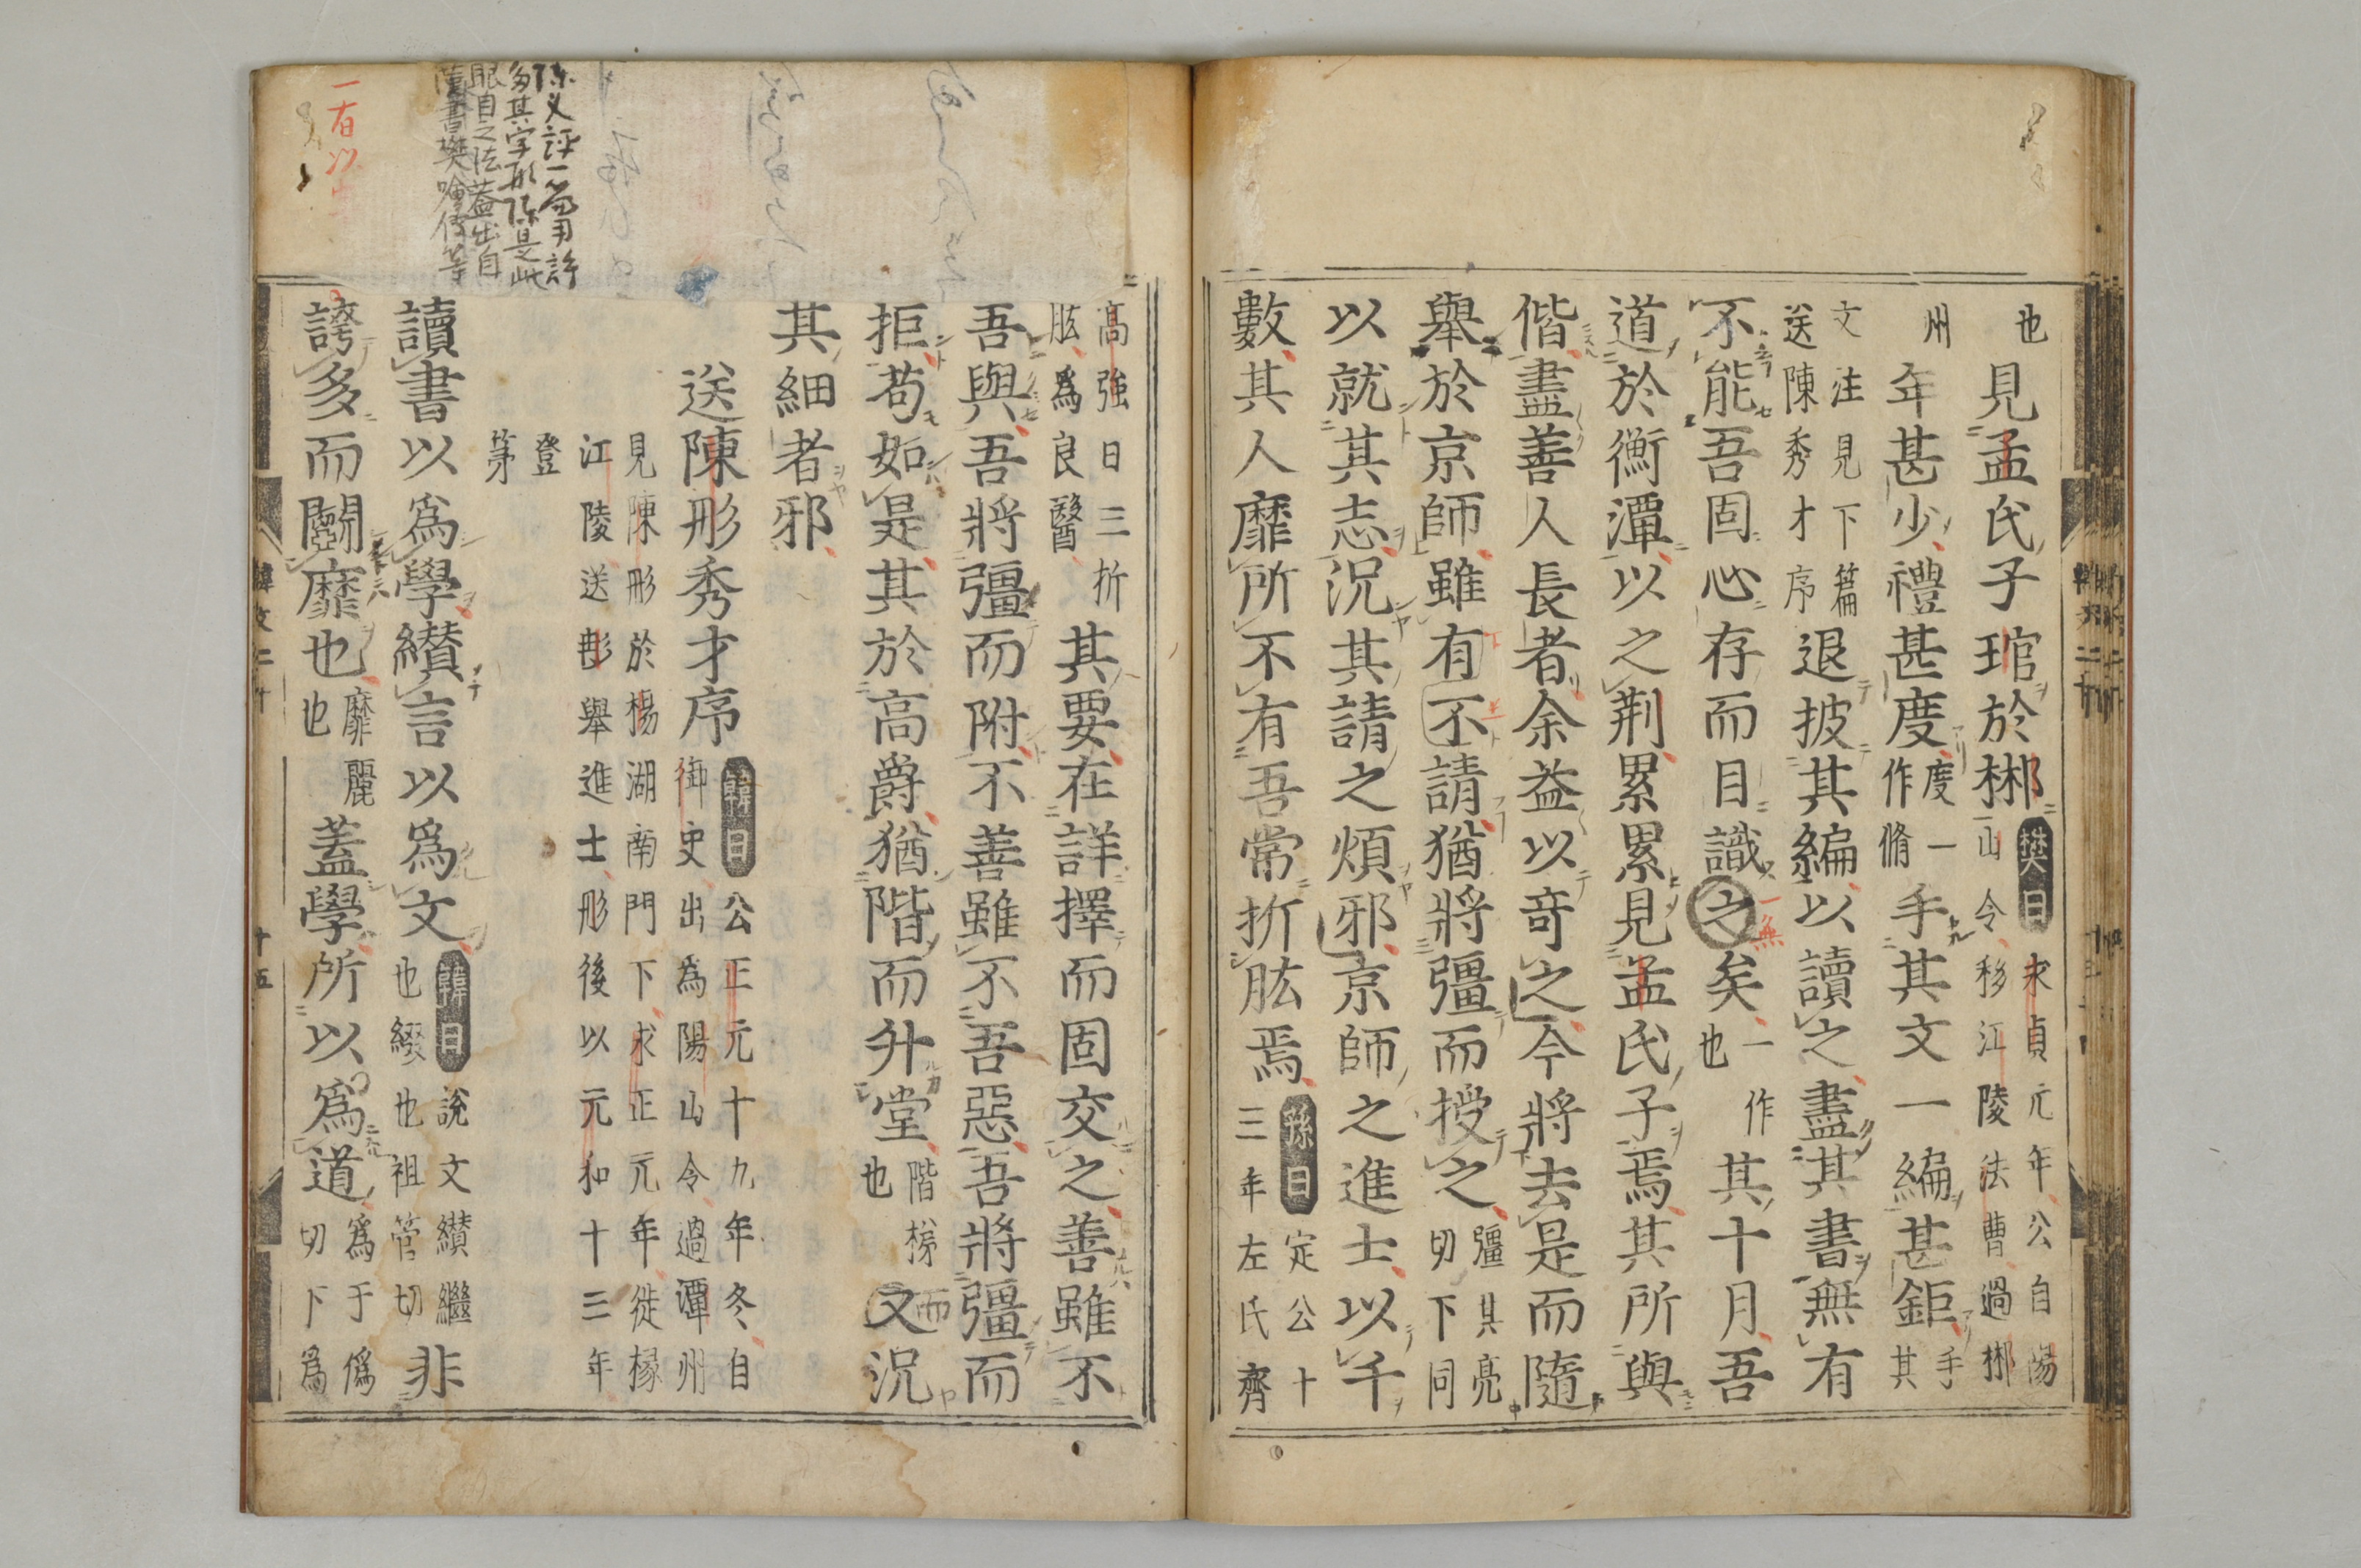 也見孟氏子琯於郴樊曰永貞元年公自陽山令移江陵法曹過郴
州年甚少禮甚度度一作脩手其文一編甚鉅手其
文注見下篇送陳秀才序退披其編以讀之盡其書無有
不能吾固心存而目識之矣一作也其十月吾
道於衡潭以之荆累累見孟氏子焉其所與
偕盡善人長者余益以竒之今將去是而隨
舉於京師雖有不請猶將彊而授之彊其亮切下同
以就其志況其請之煩邪京師之進士以千
數其人靡所不有吾常折肱焉孫曰定公十三年左氏齊
高強曰三折肱爲良醫其要在詳擇而固交之善雖不
吾與吾將彊而附不善雖不吾惡吾將彊而
拒苟如是其於高爵猶階而升堂階梯也又況
其細者邪
送陳彤秀才序韓曰公正元十九年冬自御史出為陽山令過潭州
見陳彤於楊湖南門下永正元年徙掾江陵送彤舉進士彤後以元和十三年
登第
讀書以爲學纘言以爲文韓曰說文纘繼也綴也祖管切非
誇多而鬬靡也靡麗也蓋學所以爲道爲于僞切下爲
韓文二十
十五